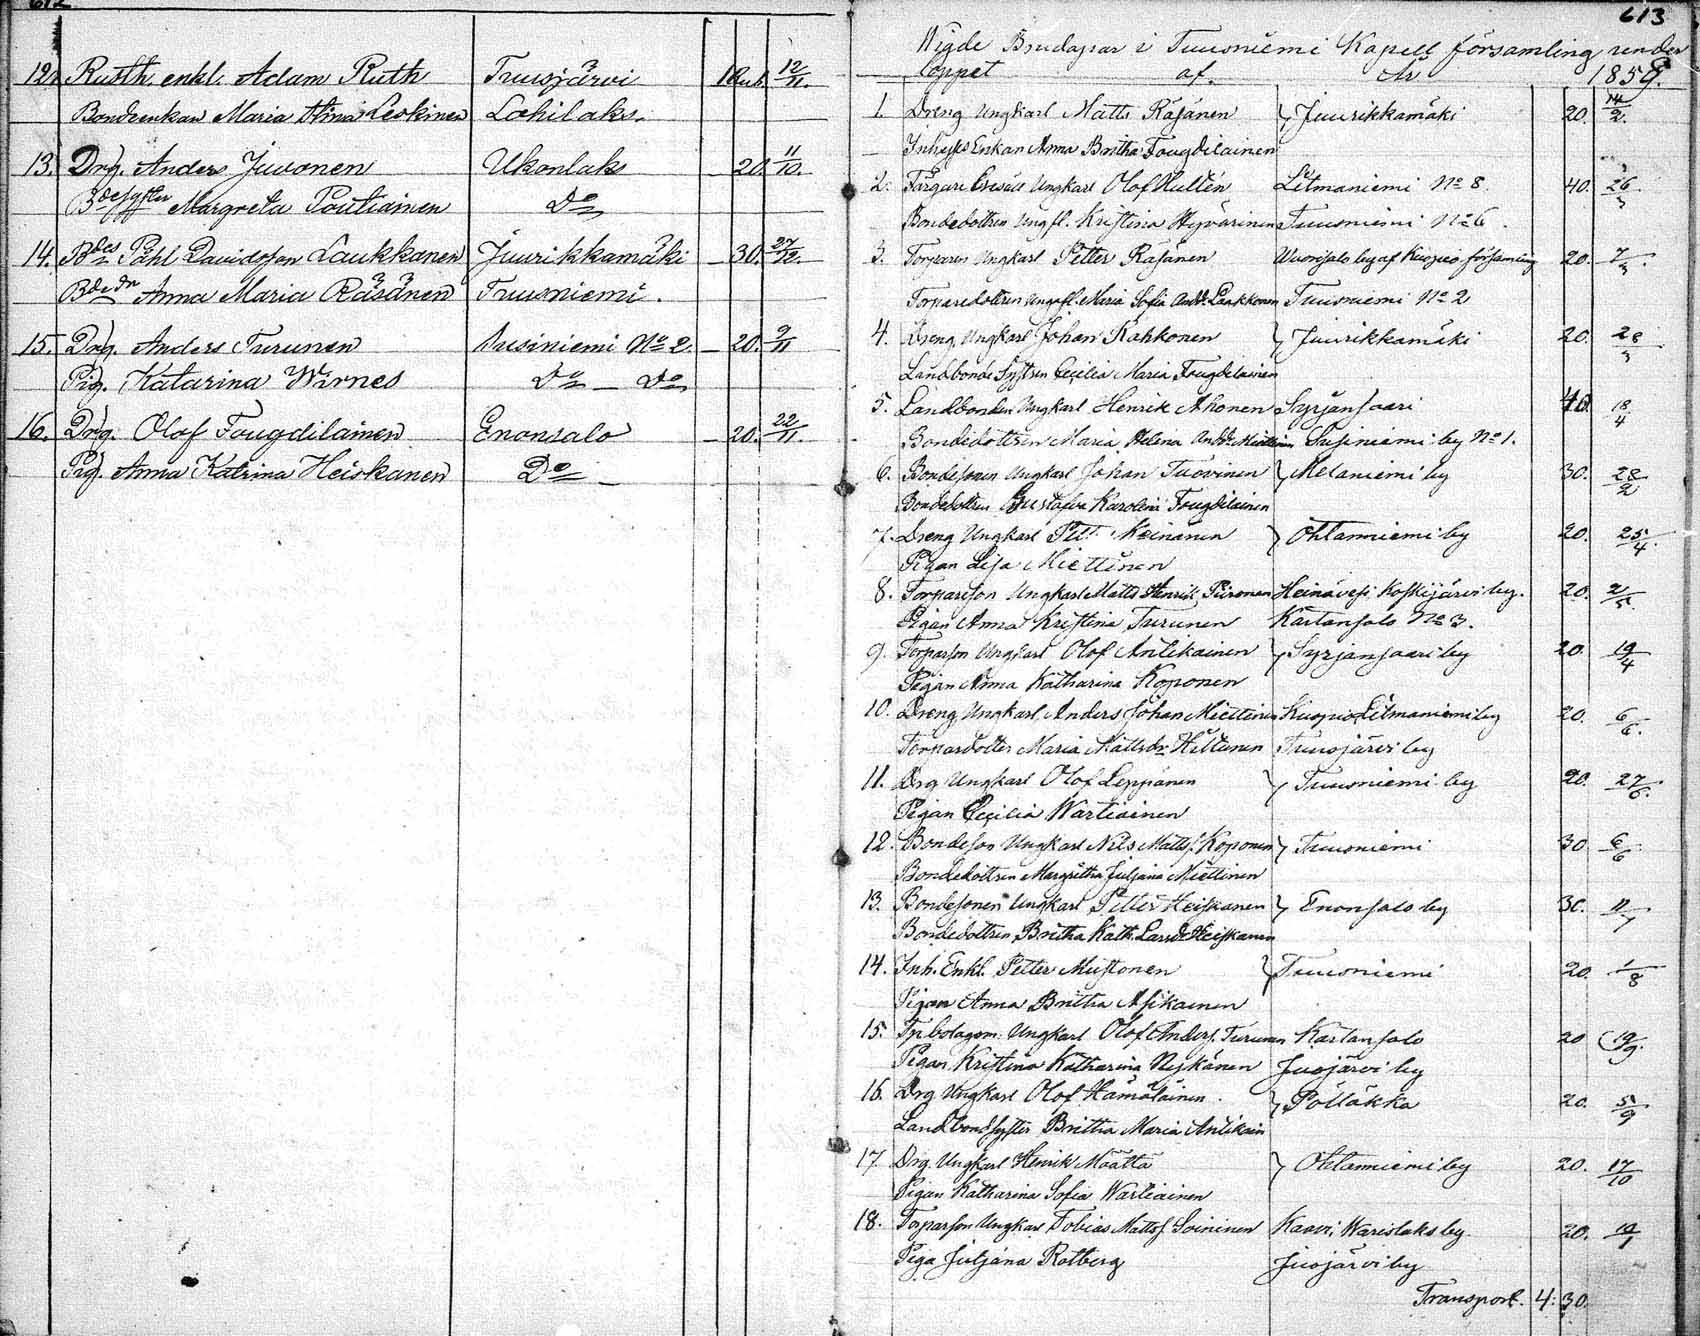 612
12. Rusth. enkl. Adam Ruth Tuusjärvi 1 Rub. 12/11.
Bondeenkan Maria Stina Leskinen Lochilaks.
13. Drg. Anders Juvonen Ukonlaks 20. 11/10.
Bdesyster Margreta Poutiainen Do
14. Bdes. Påhl Davidsson Laukkanen Juurikkamäki 30. 27/12.
Bdedr Anna Maria Räsänen Tuusniemi.
15. Drg. Anders Turunen Susiniemi No 2. 20. 9/11
Pig. Katarina Wärnes Do Do
16. Drg. Olof Fougdilainen Enonsalo 20. 22/11.
Pig. Anna Katrina Heiskanen Do
613
Wigde Brudapar i Tuusniemi Kapell församling under
loppet af År 1859.
1. Dreng Ungkarl Matts Räsänen } Juurikkamäki 20. 14/2.
Inhyses Enkan Anna Britha Fougdilainen
2. Färgare Ungkarl Olof Hultén Litmaniemi No 8. 40. 26/3
Bondedottren Ungfl. Kristina Hyvärinen Tuusniemi No 6.
3. Torparen Ungkarl Petter Räsänen Wuorisalo by af Kuopio församling 20. 7/3.
Torparedottren Ungfl. Maria Sofia Laakkonen Tuusniemi No 2
4. Dreng Ungkarl Johan Rahkonen } Juurikkamäki 20. 28/3
Landbonde Systren Cecilia Maria Fougdilainen
5. Landbonden Ungkarl Henrik Ahonen Syrjänsaari 40. 18/4
Bondedottren Maria Helena Andd. Miettinen Susiniemi by No 1.
6. Bondesonen Ungkarl Johan Tuovinen } Melaniemi by 30. 28/2
Bondedottren Gustafva Karolina Fougdilainen
7. Dreng Ungkarl Pet. Meinänen } Ohtanniemi by 20. 25/4.
Pigan Lisa Miettinen
8. Torparson Ungkarl Matts Henrik Piironen Heinävesi Koskijärvi by. 20. 2/5.
Pigan Anna Kristina Turunen Kartansalo No 3.
9. Torparson Ungkarl Olof Antikainen } Syrjänsaari by 20. 19/4
Pigan Anna Katharina Koponen
10. Dreng Ungkarl Anders Johan Miettinen Kuopio Litmaniemi by 20. 6/6.
Torpardotter Maria Mattsdr Hiltunen Tuusjärvi by
11. Drg Ungkarl Olof Leppänen } Tuusniemi by 20. 27/6.
Pigan Cecilia Wartiainen
12. Bondeson Ungkarl Nils Mattss. Koponen } Tuusniemi 30. 6/6
Bondedottren Margretha Juljana Miettinen
13. Bondesonen Ungkarl Petter Heiskanen } Enonsalo by 30. 11/7
Bondedottren Britha Kath. Larsdr Heiskanen
14. Inh. Enkl. Petter Mustonen } Tuusniemi 20. 1/8
Pigan Anna Britha Asikainen
15. Tp. bolagsm. Ungkarl Olof Anders. Turunen Kartansalo 20 19/9.
Pigan Kristina Katharina Niskanen Juojärvi by
16. Drg Ungkarl Olof Hämäläinen. } Pölläkkä 20. 5/9
Landbondsyster Britha Maria Antikain
17. Drg. Ungkarl Henrik Määttä } Ohtanniemi by 20. 17/10
Pigan Katharina Sofia Wartiainen
18. Torparson Ungkarl Tobias Mattss. Soininen Kaavi, Warislaks by. 20. 19/1
Piga Juljana Rotberg Juojärvi by
Transport. 4: 30.